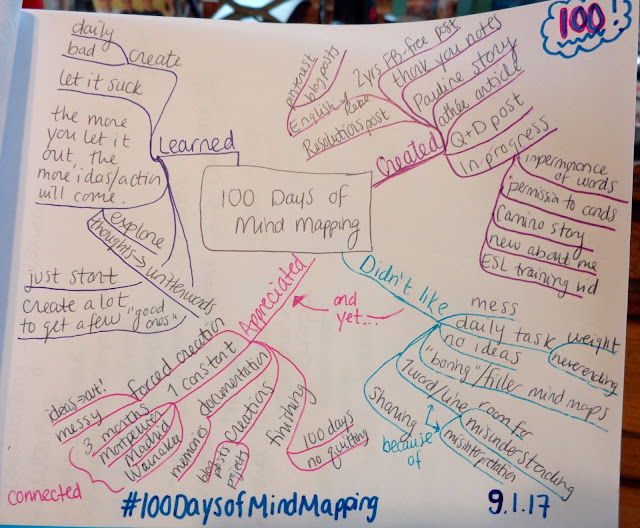 100!
100 Days of
Mind Mapping
Learned
daily
bad
create
let it suck
the more
you let it
out, the
more ideas/action
will come.
explore
thoughts → written words
just start
create a lot
to get a few "good
ones"
Created
2yrs FB-free post
pinterest
blog posts
English
Resolutions post
thank you notes
Pauline story
article
Q+D post
In-progress
impermanence
of words
permission to cards
Camino story
new about me
ESL training vid
Didn't like
mess
daily task
weight
never ending
no ideas
"boring"/filler mind maps
1 word/line
room for
misunderstanding
misinterpretation
sharing
because
of
and
yet...
Appreciated
forced creation
ideas → out!
messy
1 constant
3 months
Montpellier
Madrid
Waunakee
connected
documentation
memories
creations
blog
posts
projects
finishing
100 days
no quitting
#100DaysofMindMapping
9.1.17